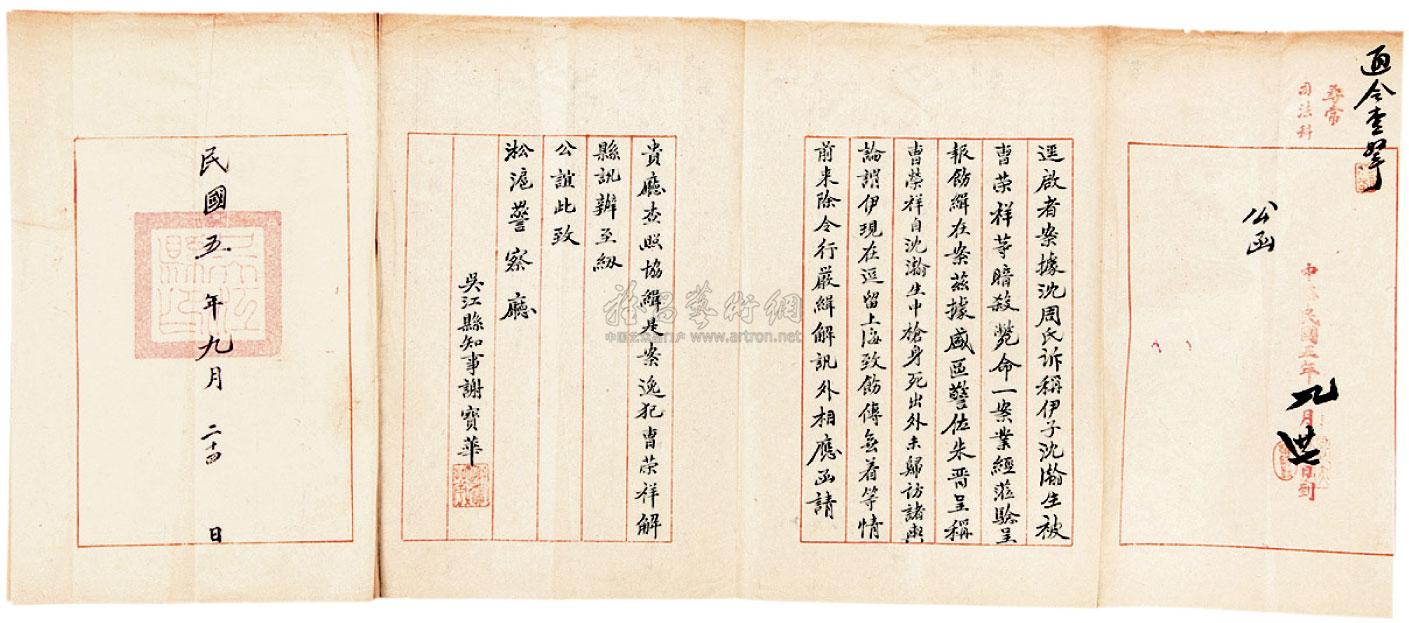 通令查拏
尋常
司法科
公函
中華民國五年九月 日到
逕啟者案據沈周氏訴稱伊子沈瀚生被
曹荣祥等暗殺斃命一案業經蒞驗呈
報飭緝在案茲據盛區警佐朱晋呈稱
曹榮祥自沈瀚生中槍身死出外未歸訪諸輿
論謂伊現在逗留上海致飭傳無着等情
前来除令行嚴緝解訊外相應函請
貴廳查照協緝是案逸犯曹荣祥解
縣訊辦至紉
公誼此致
淞滬警察廳
吳江縣知事謝寶華
民國五年九月二十四日
雅昌藝術網
中国艺术品门户 www.artron.net